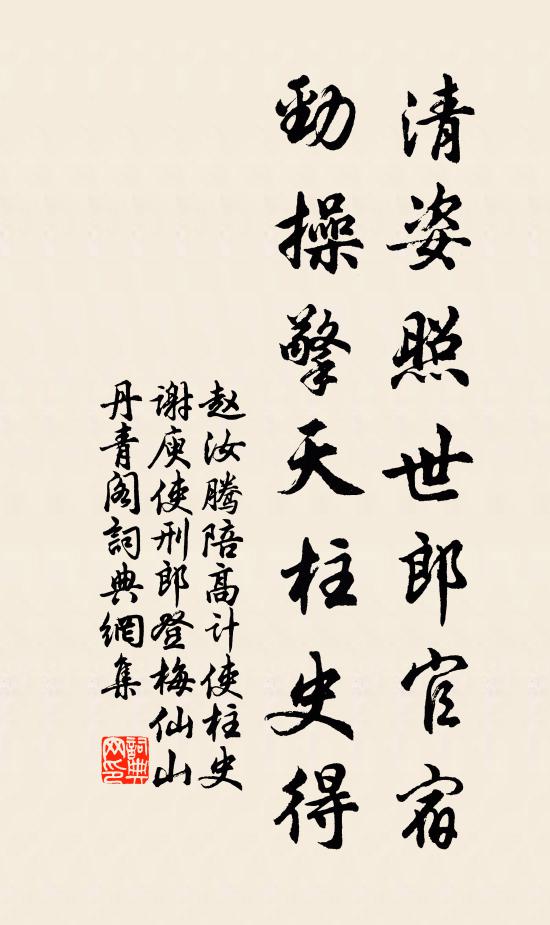 清姿照世郎官宿
勁操擎天柱史得
赵汝腾陪高计使柱史
谢庾使刑郎登梅仙山
丹青阁詞典網集
詞典
网印